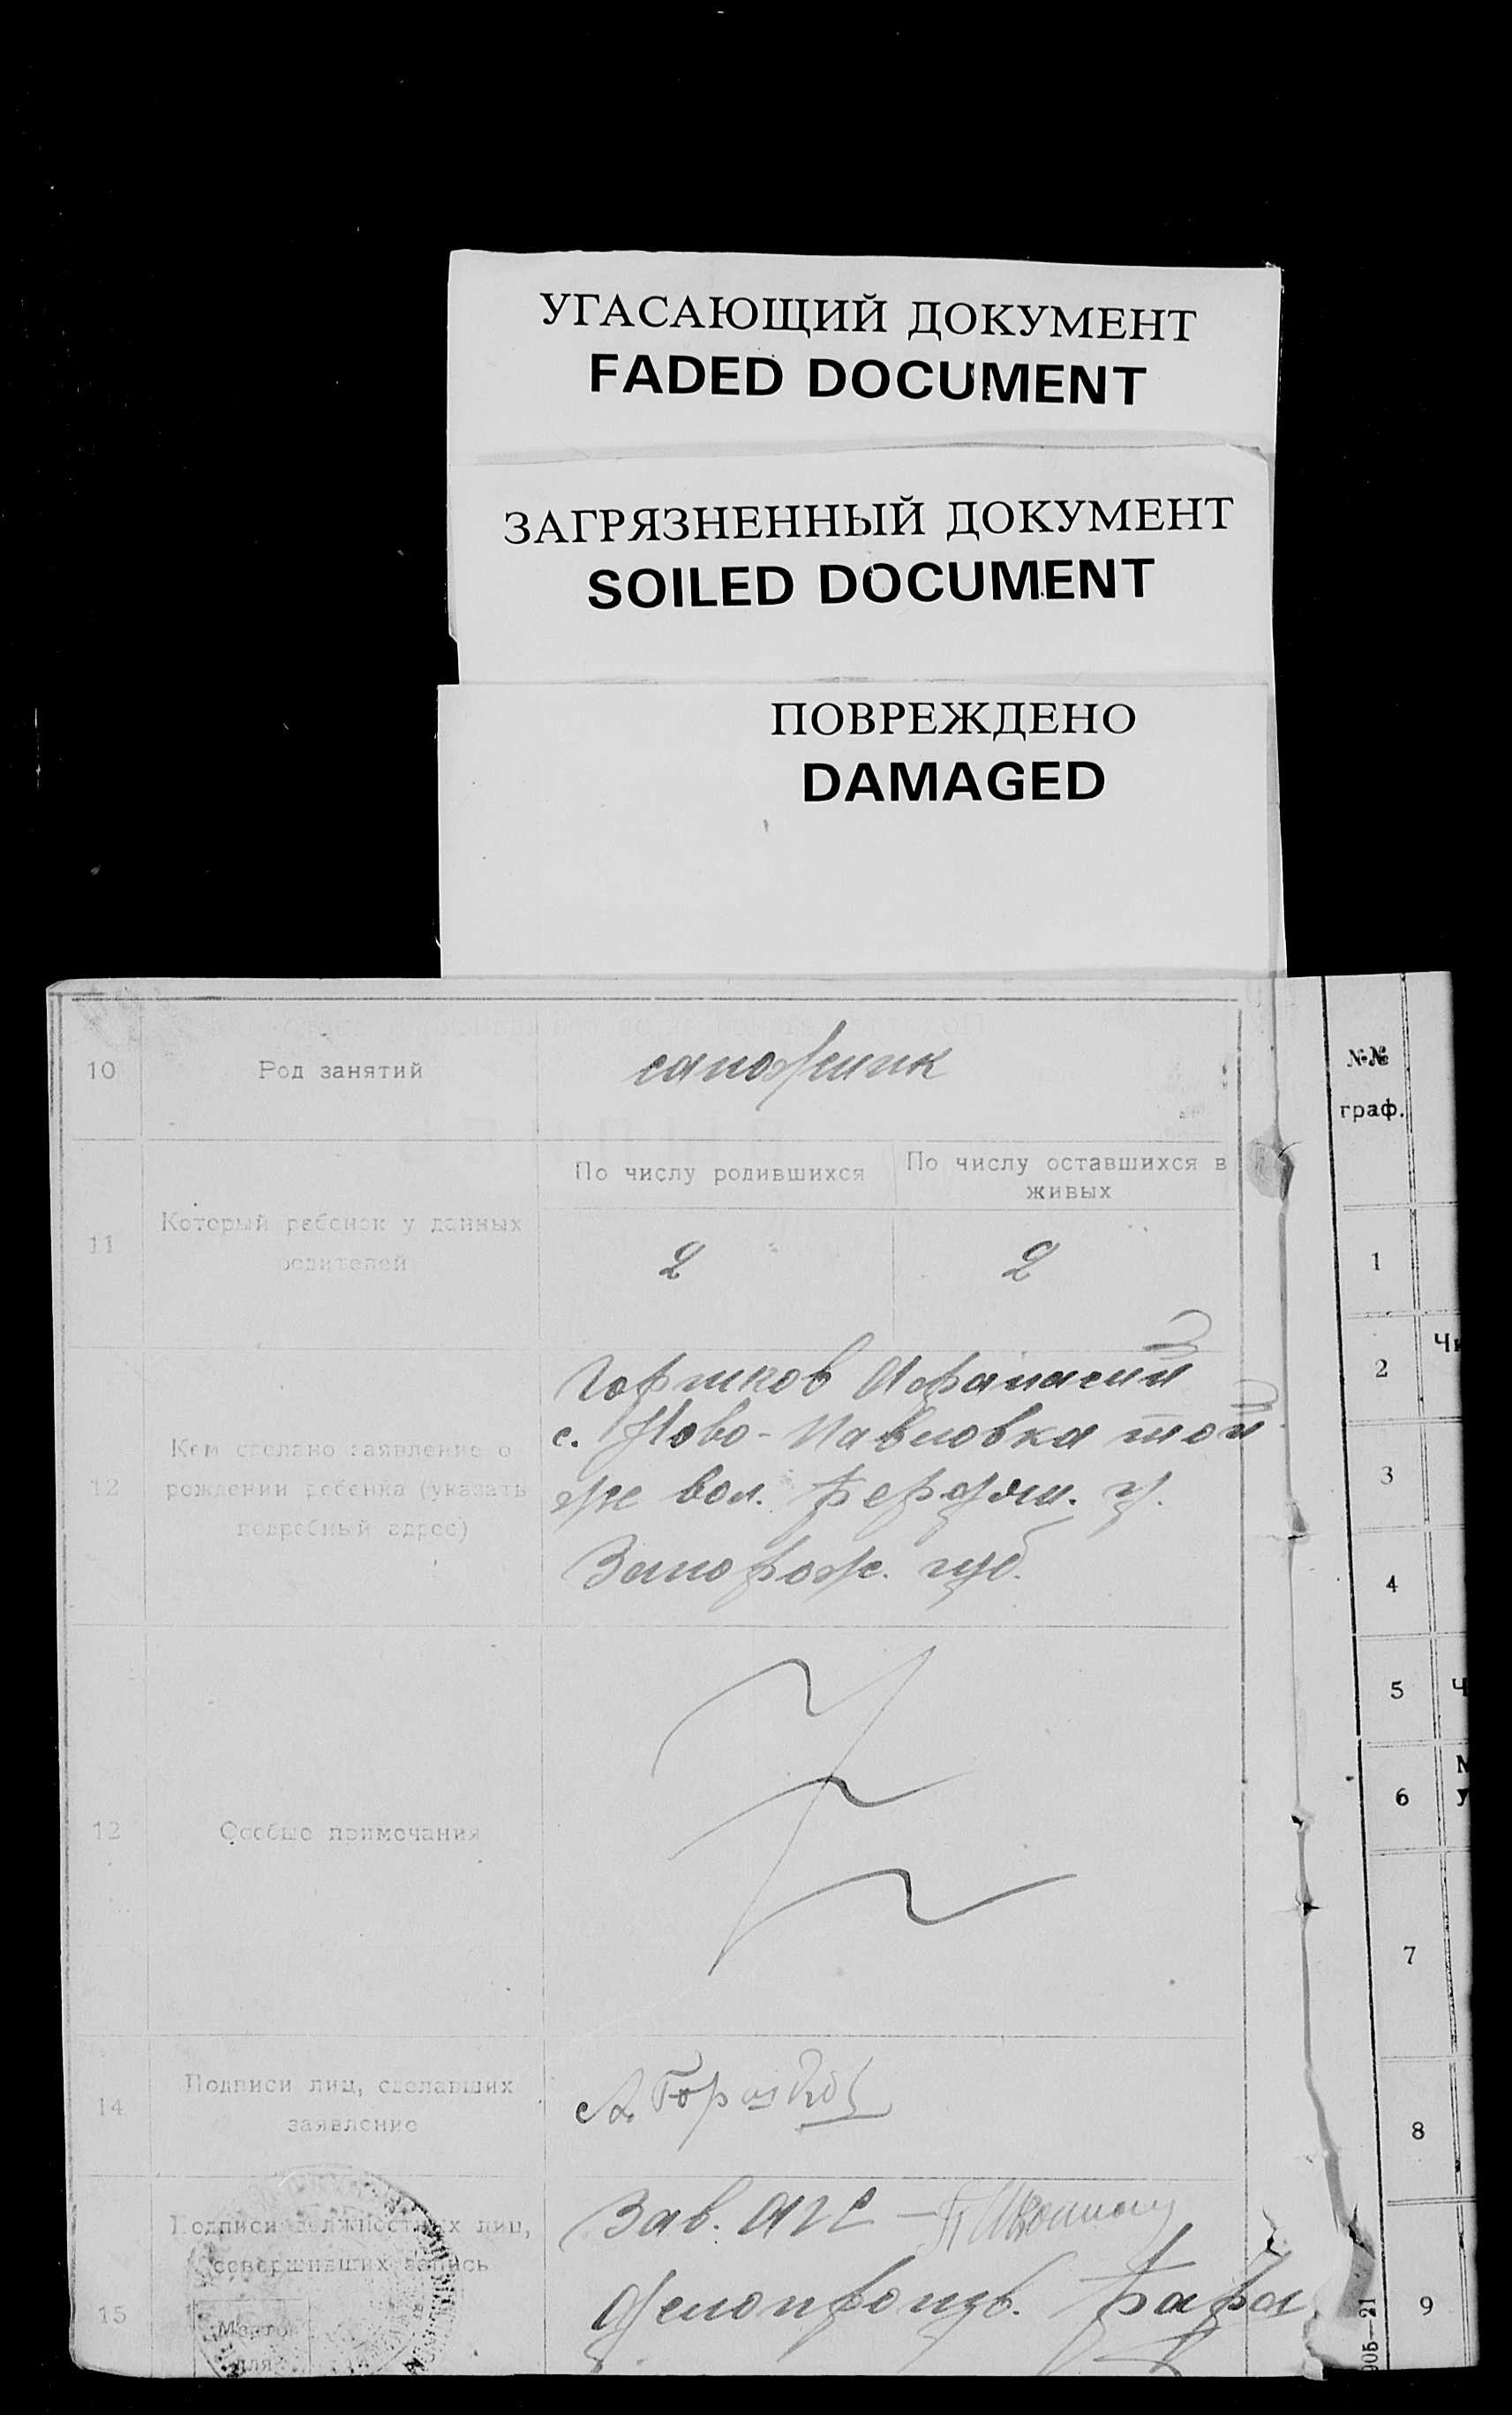 УГАСАЮЩИЙ ДОКУМЕНТ
FADED DOCUMENT
ЗАГРЯЗНЕННЫЙ ДОКУМЕНТ
SOILED DOCUMENT
ПОВРЕЖДЕНО
DAMAGED
10 Род занятий сапожник
11 Который ребенок у данных родителей
По числу родившихся
По числу оставшихся в
живых
2 2
12 Кем сделано заявление о
рождении ребенка (указать
подробный адрес)
Горшков Афанасий
с. Ново-Павловка той
же вол. Бердян. у.
Запорож. губ.
13 Особые примечания
14 Подписи лиц, сделавших
заявление
А. Горшков
15 Подписи должностных лиц,
совершивших запись
Зав.
Делопроизв.
Место
для
№№
граф.
1
2 Чи
3
4
5 Ч
6
7
8
9
905—21